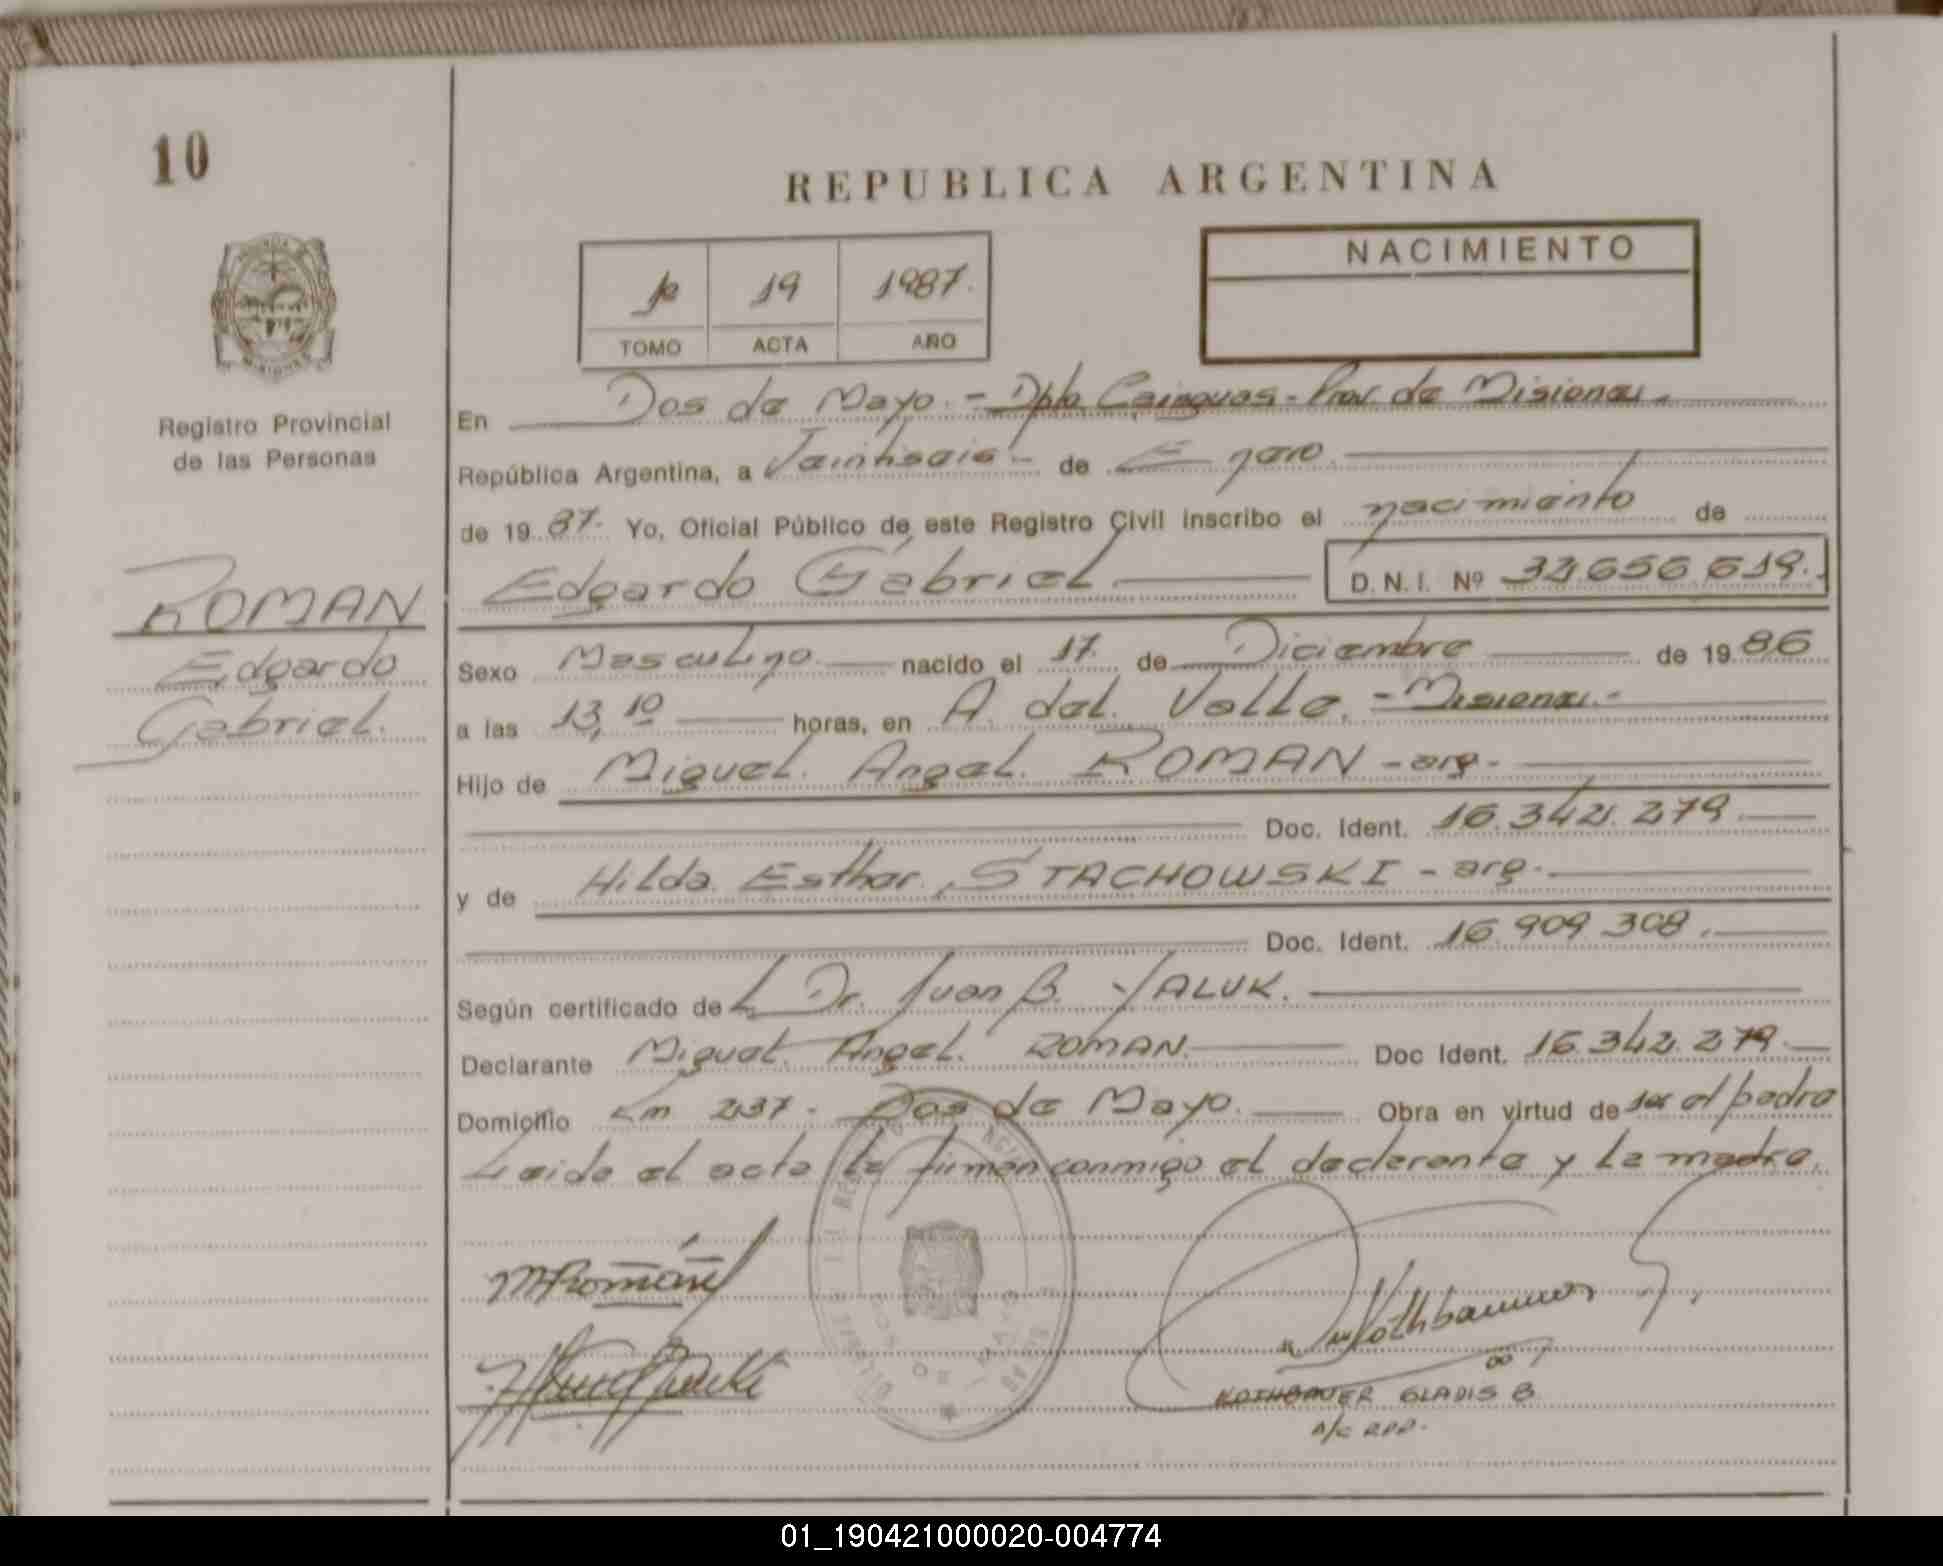 10
REPUBLICA ARGENTINA
NACIMIENTO
1º 19 1987.
TOMO ACTA AÑO
Registro Provincial
de las Personas
ROMAN
Edgardo
Gabriel.
En Dos de Mayo. - Dpto. Cainguas - Prov. de Misiones.
República Argentina, a Veintiseis - de Enero.
de 19 87. Yo, Oficial Público de este Registro Civil inscribo el nacimiento de
Edgardo Gabriel D.N.I. Nº 32.656.619.
Sexo Masculino. nacido el 17. de Diciembre de 19 86
a las 13,10 horas, en A. del Valle. - Misiones. -
Hijo de Miguel. Angel. ROMAN - arg -
Doc. Ident. 16.342.279
y de Hilda. Esther. STACHOWSKI - arg -
Doc. Ident. 16.909.308.
Según certificado de Dr. Juan B. YALUK.
Declarante Miguel. Angel. ROMAN. Doc Ident. 16.342.279.
Domicilio Km 237. Dos de Mayo. Obra en virtud de ser el padre
Leida el acta la firman conmigo el declarante y la madre.
MRomán
Rothbauer
ROTHBAUER GLADIS B
A/C RPP.
MISIONES
01_190421000020-004774